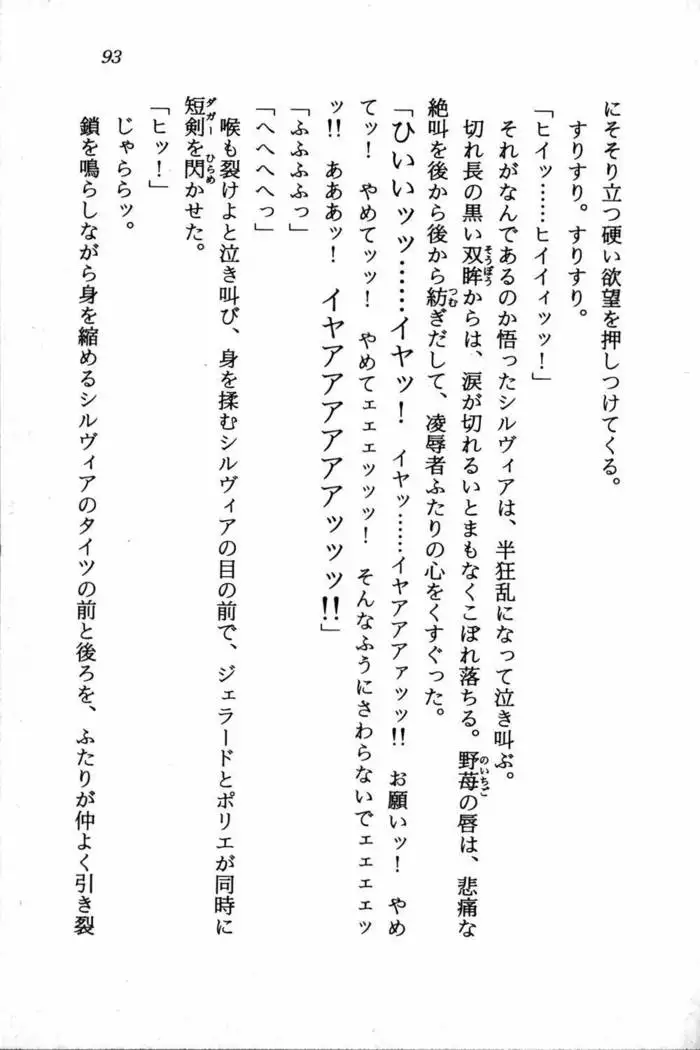 93
にそそり立つ硬い欲望を押しつけてくる。
すりすり。すりすり。
「ヒイッ……ヒイイィッッ！」
それがなんであるのか悟ったシルヴィアは、半狂乱になって泣き叫ぶ。
切れ長の黒い双眸からは、涙が切れるいとまもなくこぼれ落ちる。野苺の唇は、悲痛な
絶叫を後から後から紡ぎだして、凌辱者ふたりの心をくすぐった。
「ひいいッッ……イヤッ！　イヤッ……イヤアアアァッッ!!　お願いッ！　やめ
てッ！　やめてッッ！　やめてェェェッッッ！　そんなふうにさわらないでェェェェッ
ッ!!　あああッ！　イヤアアアアアアッッッ!!」
「ふふふふっ」
「へへへへっ」
喉も裂けよと泣き叫び、身を揉むシルヴィアの目の前で、ジェラードとポリエが同時に
短剣を閃かせた。
「ヒッ！」
じゃららッ。
鎖を鳴らしながら身を縮めるシルヴィアのタイツの前と後ろを、ふたりが仲よく引き裂